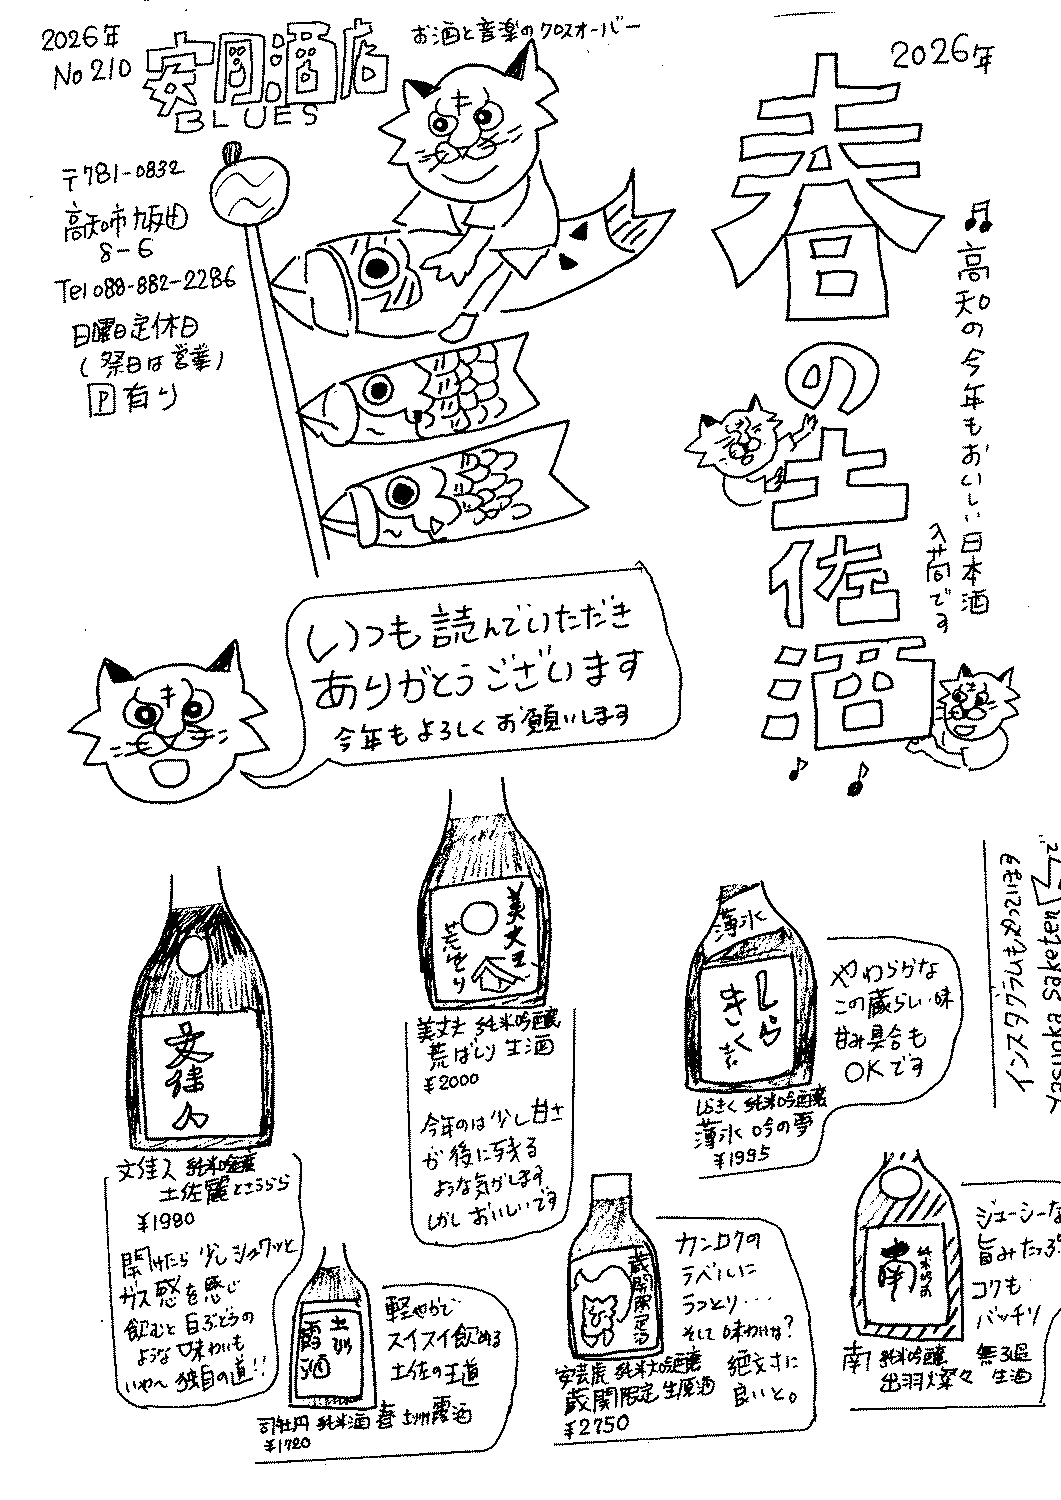 2026年
No 210
安岡酒店
BLUES
お酒と音楽のクロスオーバー
〒781-0832
高知市九反田
8-6
Tel 088-882-2286
日曜日定休日
(祭日は営業)
P有り
2026年
春の土佐酒
高知の今年もおいしい日本酒
入荷です
いつも読んでいただき
ありがとうございます
今年もよろしくお願いします
インスタグラムもやっています
Yasuoka Saketen
で
文佳人
文佳人 純米吟醸
土佐麗とさうらら
¥1980
開けたら少しシュワッと
ガス感を感じ
飲むと白ぶどうの
ような味わいも
いや〜独自の道!!
美丈夫
荒ばしり
美丈夫 純米吟醸
荒ばしり 生酒
¥2000
今年のは少し甘さ
が後に残る
ような気がします
しかしおいしいです
薄氷
しらぎく
しらぎく 純米吟醸
薄氷 吟の夢
¥1995
やわらかな
この蔵らしい味
甘み具合も
OKです
霧酒
司牡丹 純米酒 春 霧酒
¥1720
軽やかで
スイスイ飲める
土佐の王道
蔵開限定酒
安芸虎 純米大吟醸
蔵開限定 生原酒
¥2750
カンロクの
ラベルに
うっとり...
そして味わいは?
絶対に
良いと。
南
純米吟醸
南 純米吟醸 無ろ過
出羽燦々 生酒
ジューシーな
旨みたっぷ
コクも
バッチリ